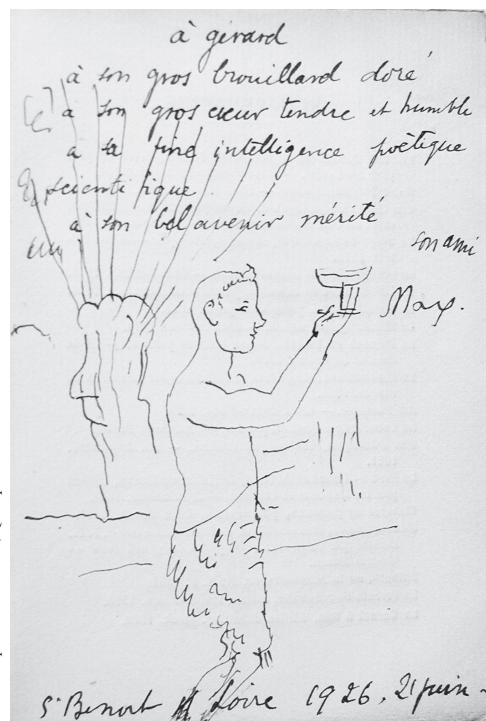 à gérard
à son gros brouillard doré
à son gros cœur tendre et humble
a sa fine intelligence poètique
et scientifique
à son bel avenir mérité
son ami
Max.
St Benoit s/ Loire 1926. 21 juin